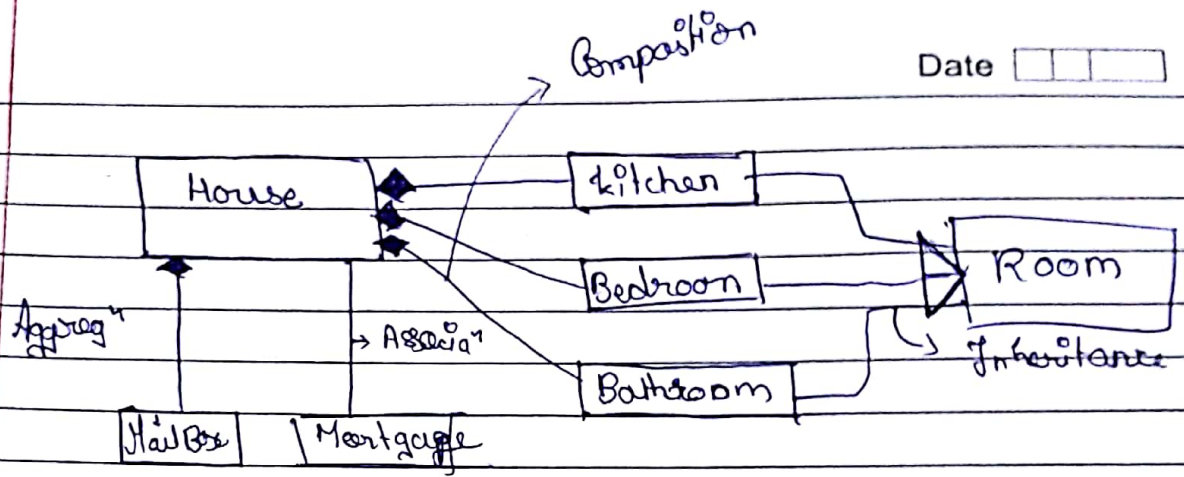 Compostion
Date
House
kitchen
Bedroon
Room
Aggregⁿ
Associaⁿ
Inheritance
Bathroom
MailBox
Mortgage